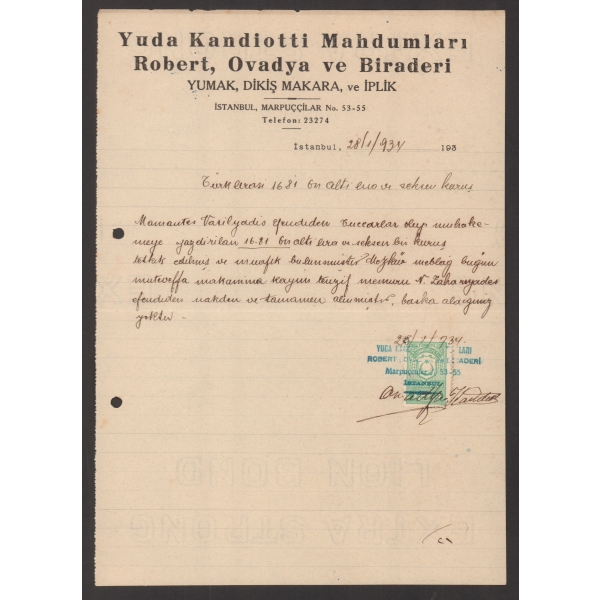 Yuda Kandiotti Mahdumları
Robert, Ovadya ve Biraderi
YUMAK, DİKİŞ MAKARA, ve İPLİK
İSTANBUL, MARPUÇÇİLAR No. 53-55
Telefon: 23274
İstanbul, 28/1/934 193
Türk lirası 16.81 on altı lira ve seksen kuruş
Vasilyadis efendiden tuccarlar
yazdirilan 16.81 on altı lira ve seksen bir kuruş
edilmiş ve muafık bulunmuştur Mezkûr meblağ bugün
muteveffa makamına kayim memuru N. Zahariyades
efendiden nakden ve tamamen alınmıştır, baska alacağımız
yoktur
28/1/934.
YUDA LARI
ROBERT, ADERİ
Marpuççular 53-55
İSTANBUL